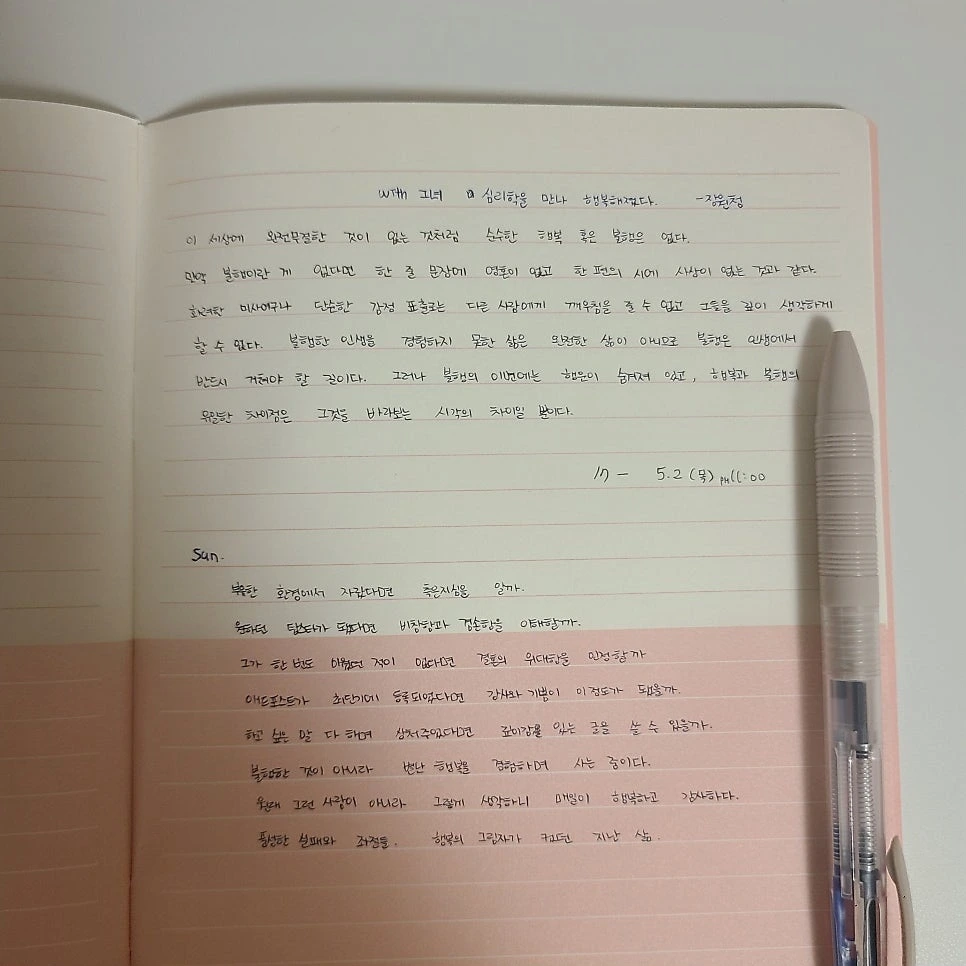 with 그녀 심리학을 만나 행복해졌다. -장원청
이 세상에 완전무결한 것이 없는 것처럼 순수한 행복 혹은 불행은 없다.
만약 불행이란 게 없다면 한 줄 문장에 영혼이 없고 한 편의 시에 사상이 없는 것과 같다.
화려한 미사여구나 단순한 감정 표출로는 다른 사람에게 깨우침을 줄 수 없고 그들을 깊이 생각하게
할 수 없다. 불행한 인생을 경험하지 못한 삶은 완전한 삶이 아니므로 불행은 인생에서
반드시 거쳐야 할 길이다. 그러나 불행의 이면에는 행운이 숨겨져 있고, 행복과 불행의
유일한 차이점은 그것을 바라보는 시각의 차이일 뿐이다.
5.2 (목) PM 11:00
Sun.
부유한 환경에서 자랐다면 측은지심을 알까.
원하던 탑스타가 됐다면 비참함과 겸손함을 이해할까.
그가 한 번도 미웠던 적이 없다면 결혼의 위대함을 인정할까
애드포스트가 최단기에 등록되었다면 감사와 기쁨이 이 정도가 됐을까.
하고 싶은 말 다 하며 상처주었다면 깊이감을 있는 글을 쓸 수 있을까.
불행한 것이 아니라 별난 행복을 경험하며 사는 중이다.
원래 그런 사람이 아니라 그렇게 생각하니 매일이 행복하고 감사하다.
풍성한 실패와 좌절들. 행복의 그림자가 컸던 지난 삶.